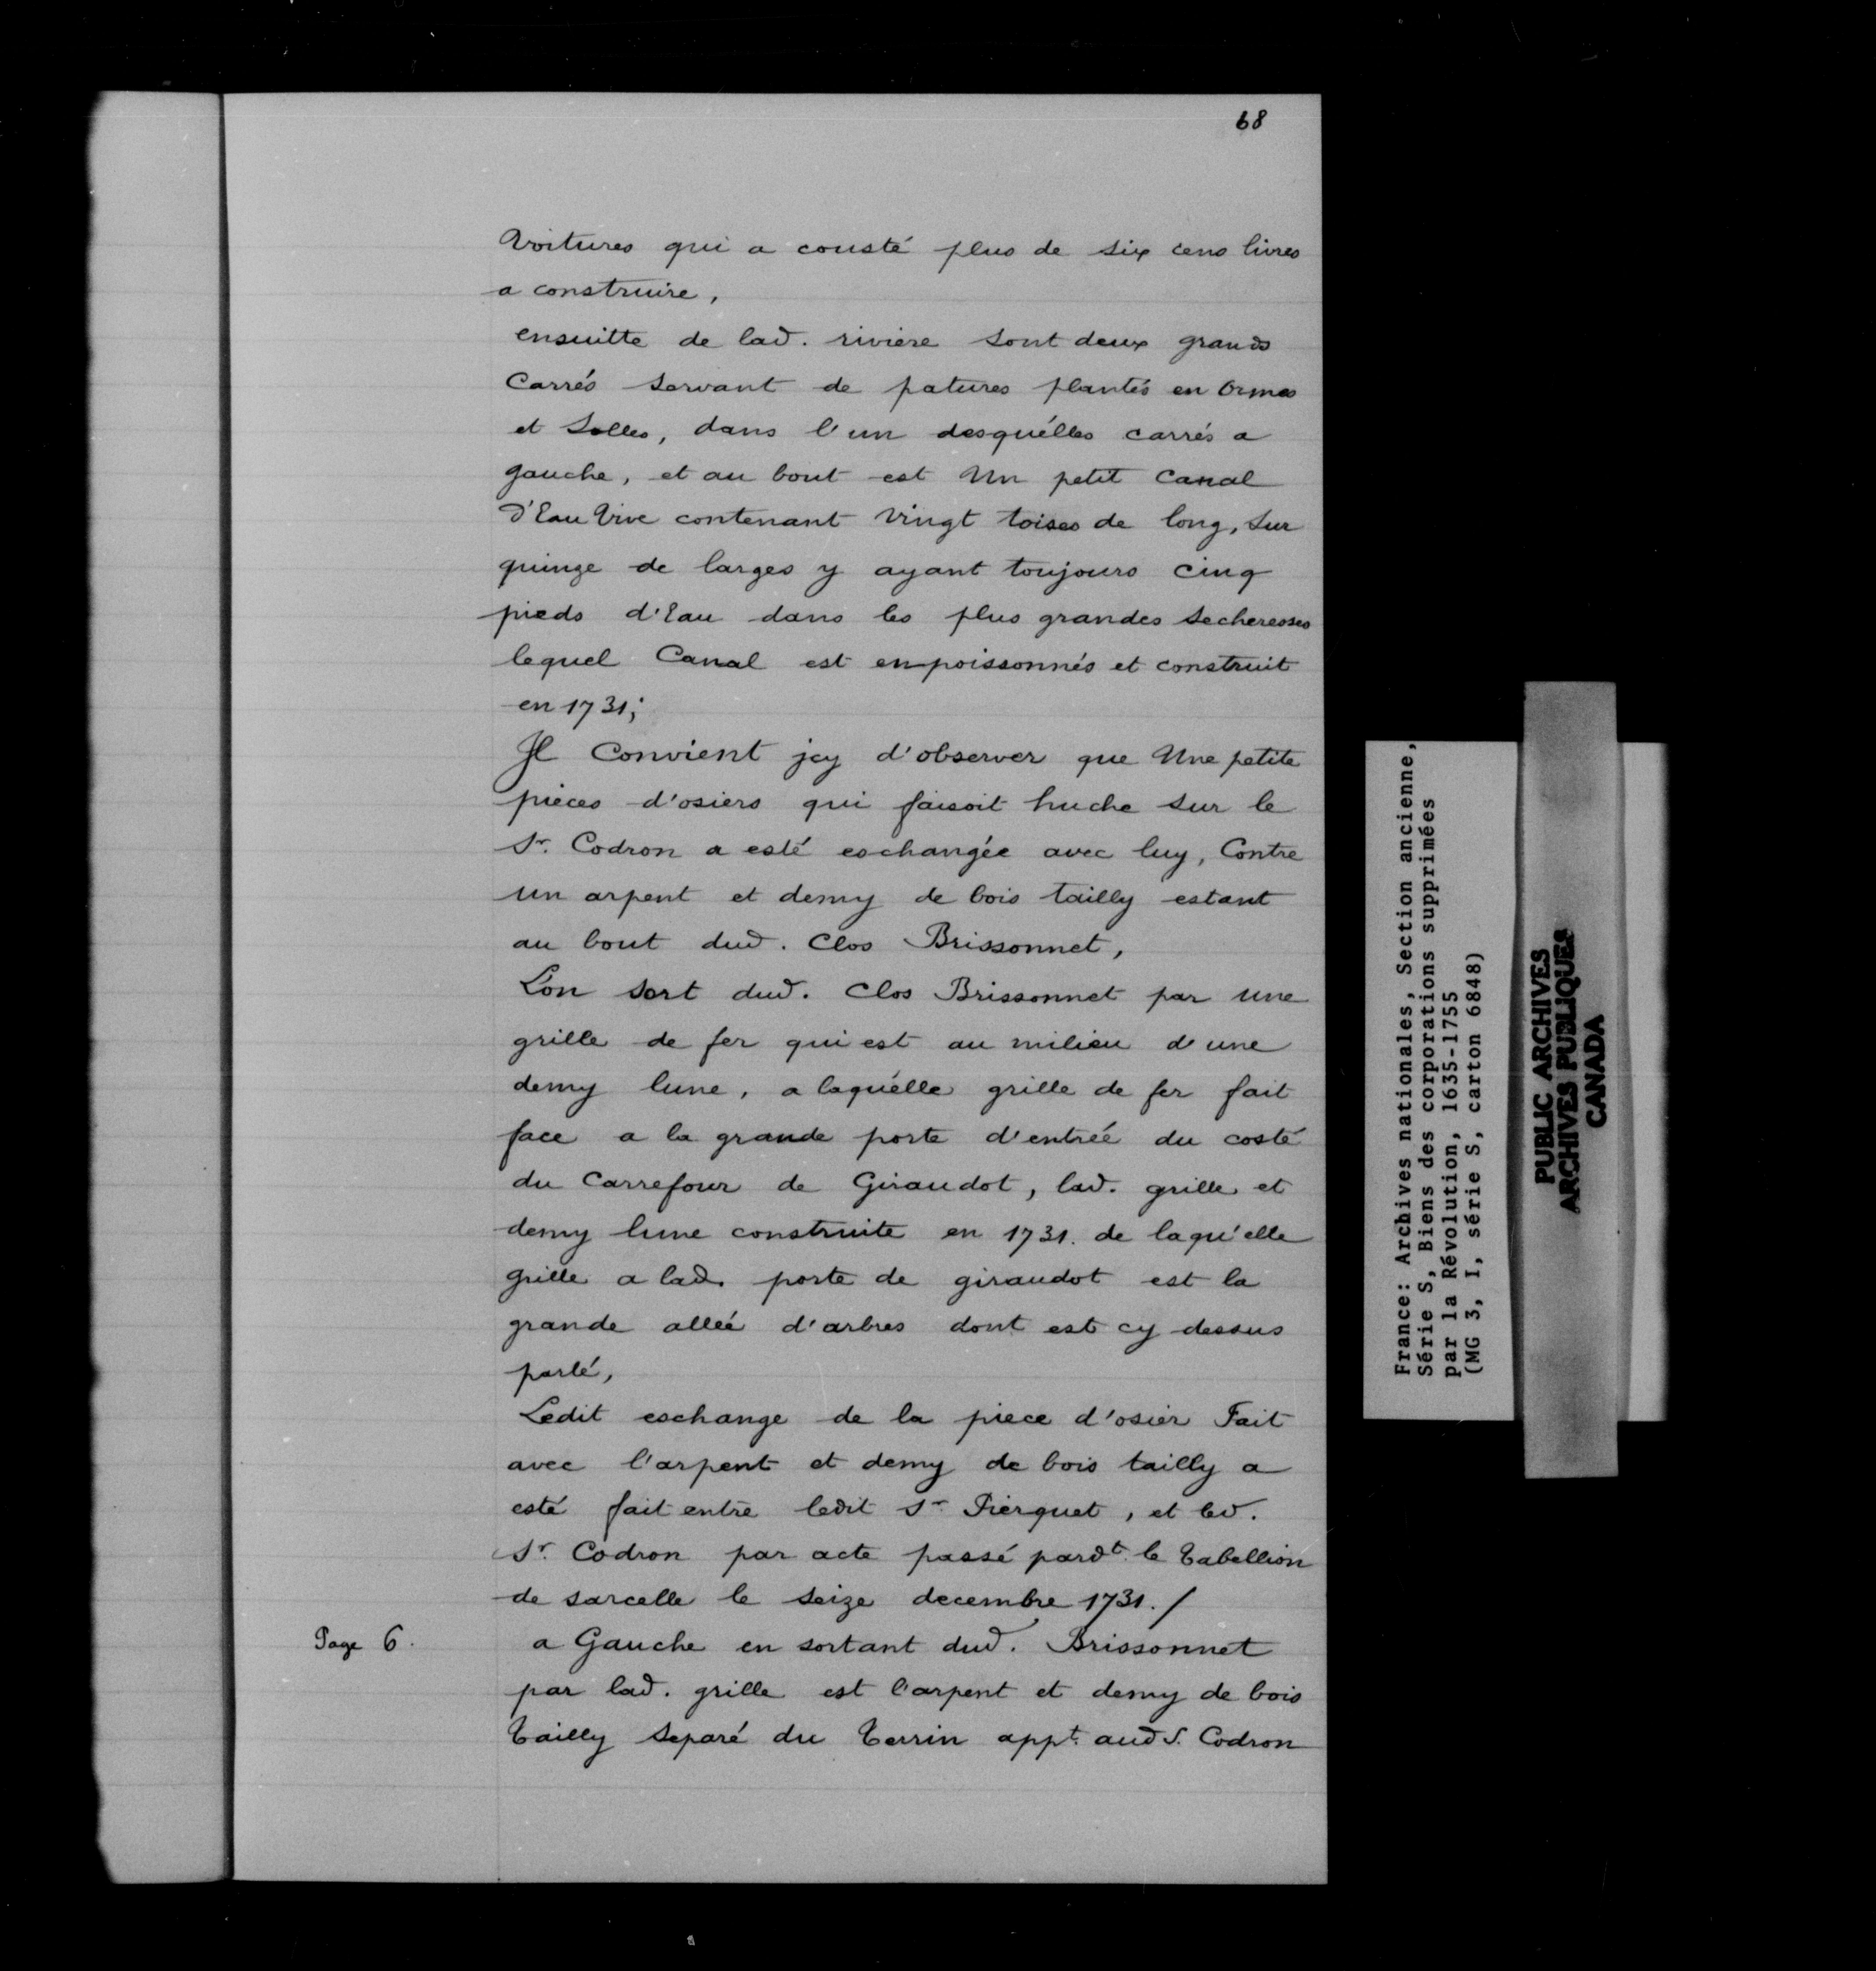 68
Voitures qui a cousté plus de six cens livres
a construire,
ensuitte de lad. riviere sont deux grands
Carrés servant de patures plantés en Ormes
et Solles, dans l'un desquélles carrés a
gauche, et au bout est Un petit Canal
d'Eau Vive contenant Vingt toises de long, Sur
quinze de larges y ayant toujours Cinq
pieds d'Eau dans les plus grandes secheresses
lequel Canal est enpoissonnés et construit
en 1731;
Jl Convient jcy d'observer que Une petite
pieces d'osiers qui faisoit huche sur le
Sr. Codron a esté eschangée avec luy, Contre
un arpent et demy de bois tailly estant
au bout dud. Clos Brissonnet,
L'on sort dud. Clos Brissonnet par une
grille de fer qui est au milieu d'une
demy lune, a laquélle grille de fer fait
face a la grande porte d'entrée du costé
du Carrefour de Giraudot, lad. grille et
demy lune construite en 1731. de laqu'elle
grille a lad. porte de giraudot est la
grande alleé d'arbres dont est cy dessus
parlé,
Ledit eschange de la piece d'osier Fait
avec l'arpent et demy de bois tailly a
esté fait entre ledit Sr Pierquet, et led.
Sr. Codron par acte passé pardt. le Tabellion
de sarcelle le seize decembre 1731./
Page 6.
a Gauche en sortant dud. Brissonnet
par lad. grille est l'arpent et demy de bois
Tailly separé du Terrin appt. aud S. Codron
France: Archives nationales, Section ancienne,
Série S, Biens des corporations supprimées
par la Révolution, 1635-1755
(MG 3, I, série S, carton 6848)
PUBLIC ARCHIVES
ARCHIVES PUBLIQUES
CANADA